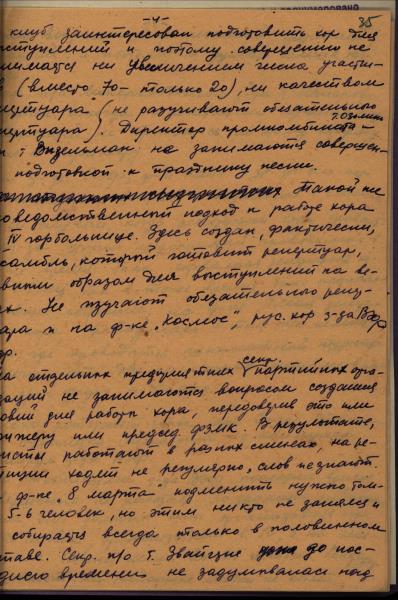 -4-
35
клуб заинтересован подготовить хор для
ступлений и поэтому совершенно не
нимается ни увеличением числа участни-
(вместо 70 - только 20), ни качеством
ертуара (не разучивают обязательного
ертуара). Директор промкомбината -
т. Озелман не занимаются совершен-
подготовкой к празднику песни.
Такой же
оведомственный подход к работе хора
IV горбольнице. Здесь создан, фактически,
самбль, который готовит репертуар,
вным образом для выступлений на ве-
х. Не изучают обязательного репер-
ара и на ф-ке "Космос", рус. хор з-да ВЭФ
др.
а отдельных предприятиях секр. партийных орга-
заций не занимаются вопросом создания
овий для работы хора, передоверив это или
ижеру или председ. ФЗМК. В результате,
исты работают в разных сменах, на ре-
тиции ходят не регулярно, слов не знают.
ф-ке "8 марта" подменить нужно бы
5-6 человек, но этим никто не занялся и
собирался всегда только в половинном
таве. Секр. п/о т. Звайгзне до пос-
днего времени не задумывалась над